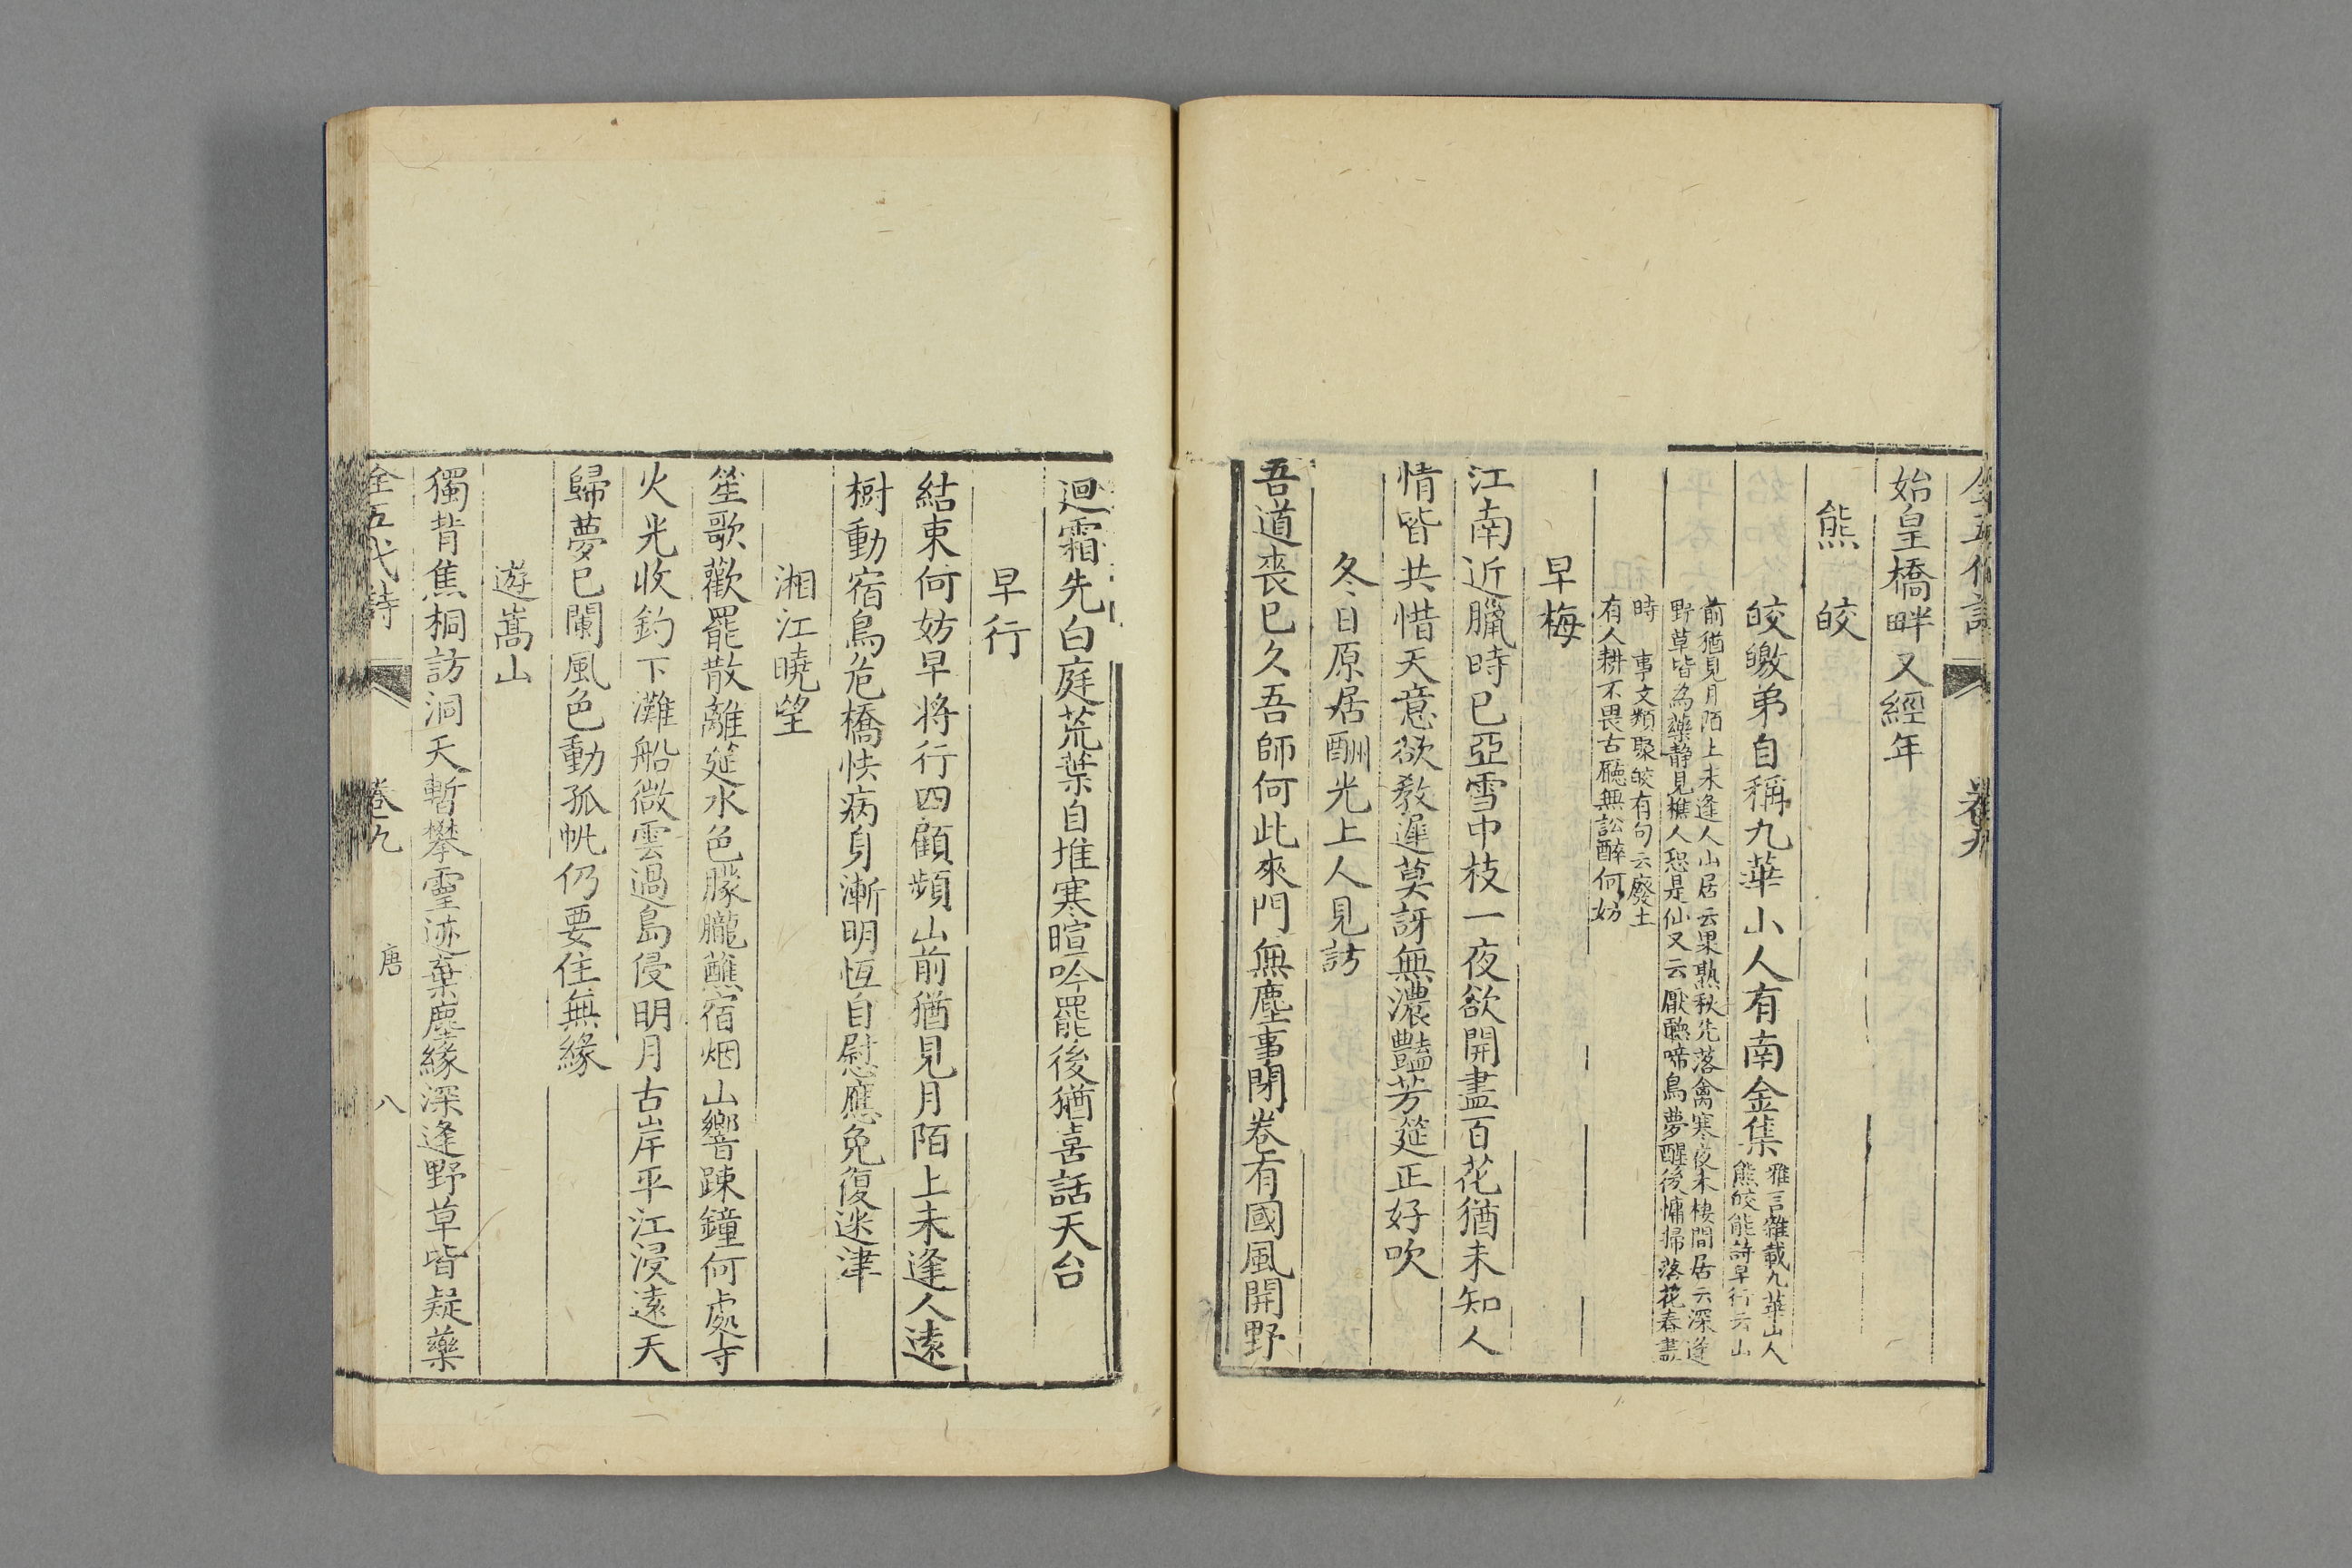 全五代詩 卷九
始皇橋畔又經年
熊皎
皎繳弟自稱九華山人有南金集
雅言雜載九華山人
熊皎能詩早行云山
前猶見月陌上未逢人山居云果熟秋先落禽寒夜未棲閒居云深逢
野草皆為藥静見樵人恐是仙又云厭聽啼鳥夢醒後慵掃落花春盡
時 事文類聚皎有句云廢土
有人耕不畏古廳無訟醉何妨
早梅
江南近臘時已亞雪中枝一夜欲開盡百花猶未知人
情皆共惜天意欲教遲莫訝無濃豔芳筵正好吹
冬日原居酬光上人見訪
吾道喪已久吾師何此來門無塵事閉卷有國風開野
迴霜先白庭荒葉自堆寒暄吟罷後猶喜話天台
早行
結束何妨早将行四顧頻山前猶見月陌上未逢人遠
樹動宿鳥危橋怯病身漸明恆自慰應免復迷津
湘江曉望
笙歌歡罷散離筵水色朦朧蘸宿烟山響踈鐘何處寺
火光收釣下灘船微雲過島侵明月古岸平江浸遠天
歸夢已闌風色動孤帆仍要住無緣
遊嵩山
獨背焦桐訪洞天暫攀靈迹棄塵緣深逢野草皆疑藥
全五代詩 卷九 唐 八